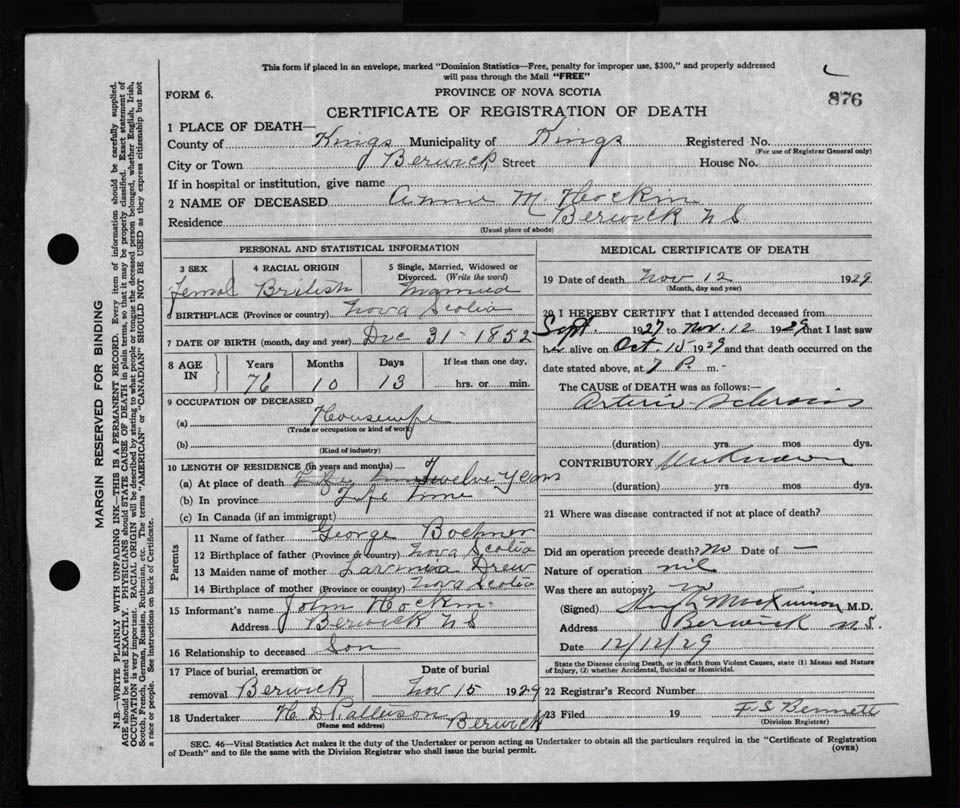 This form if placed in an envelope, marked "Dominion Statistics—Free, penalty for improper use, $300," and properly addressed
will pass through the Mail "FREE"
FORM 6.
PROVINCE OF NOVA SCOTIA
876
CERTIFICATE OF REGISTRATION OF DEATH
1 PLACE OF DEATH—
County of Kings Municipality of Kings Registered No.
(For use of Registrar General only)
City or Town Berwick Street House No.
If in hospital or institution, give name
2 NAME OF DECEASED Annie M. Hockin
Residence Berwick N S
(Usual place of abode)
PERSONAL AND STATISTICAL INFORMATION
3 SEX 4 RACIAL ORIGIN 5 Single, Married, Widowed or
Divorced. (Write the word)
Femal British Married
6 BIRTHPLACE (Province or country) Nova Scotia
7 DATE OF BIRTH (month, day and year) Dec 31-1852
8 AGE IN Years Months Days If less than one day,
76 10 13 hrs. or min.
9 OCCUPATION OF DECEASED
(a) Housewife
(Trade or occupation or kind of work)
(b)
(Kind of industry)
10 LENGTH OF RESIDENCE (in years and months) —
(a) At place of death Twelve Years
(b) In province Life time
(c) In Canada (if an immigrant)
Parents
11 Name of father George Boehner
12 Birthplace of father (Province or country) Nova Scotia
13 Maiden name of mother Lavinea Drew
14 Birthplace of mother (Province or country) Nova Scotia
15 Informant's name John Hockin
Address Berwick N S
16 Relationship to deceased Son
17 Place of burial, cremation or
removal Berwick
Date of burial
Nov 15 1929
18 Undertaker H D Berwick
(Name and address)
MEDICAL CERTIFICATE OF DEATH
19 Date of death Nov 12 1929
(Month, day and year)
20 I HEREBY CERTIFY that I attended deceased from
Sept. 1927 to Nov. 12 1929 that I last saw
h alive on Oct. 15 29 and that death occurred on the
date stated above, at 7 P. m.
The CAUSE of DEATH was as follows:—
Arterio-Sclerosis
(duration) yrs mos dys.
CONTRIBUTORY Unknown
(duration) yrs mos dys.
21 Where was disease contracted if not at place of death?
Did an operation precede death? No Date of —
Nature of operation nil
Was there an autopsy? no
(Signed) Hugh MacKinnon M.D.
Address Berwick N.S.
Date 12/12/29
State the Disease causing Death, or in death from Violent Causes, state (1) Means and Nature
of Injury, (2) whether Accidental, Suicidal or Homicidal.
22 Registrar's Record Number
23 Filed 19 F. S. Bennett
(Division Registrar)
SEC. 46—Vital Statistics Act makes it the duty of the Undertaker or person acting as Undertaker to obtain all the particulars required in the "Certificate of Registration
of Death" and to file the same with the Division Registrar who shall issue the burial permit.
(OVER)
MARGIN RESERVED FOR BINDING
N.B.—WRITE PLAINLY WITH UNFADING INK—THIS IS A PERMANENT RECORD. Every item of information should be carefully supplied.
AGE should be stated EXACTLY. PHYSICIANS should STATE CAUSE OF DEATH in plain terms, so that it may be properly classified. Exact statement of
OCCUPATION is very important. RACIAL ORIGIN will be described by stating to what people or tongue the deceased person belonged, whether English, Irish,
Scotch, French, German, Russian, Ruthenian, etc. The terms "AMERICAN" or "CANADIAN" SHOULD NOT BE USED as they express citizenship but not
a race or people. See instructions on back of Certificate.